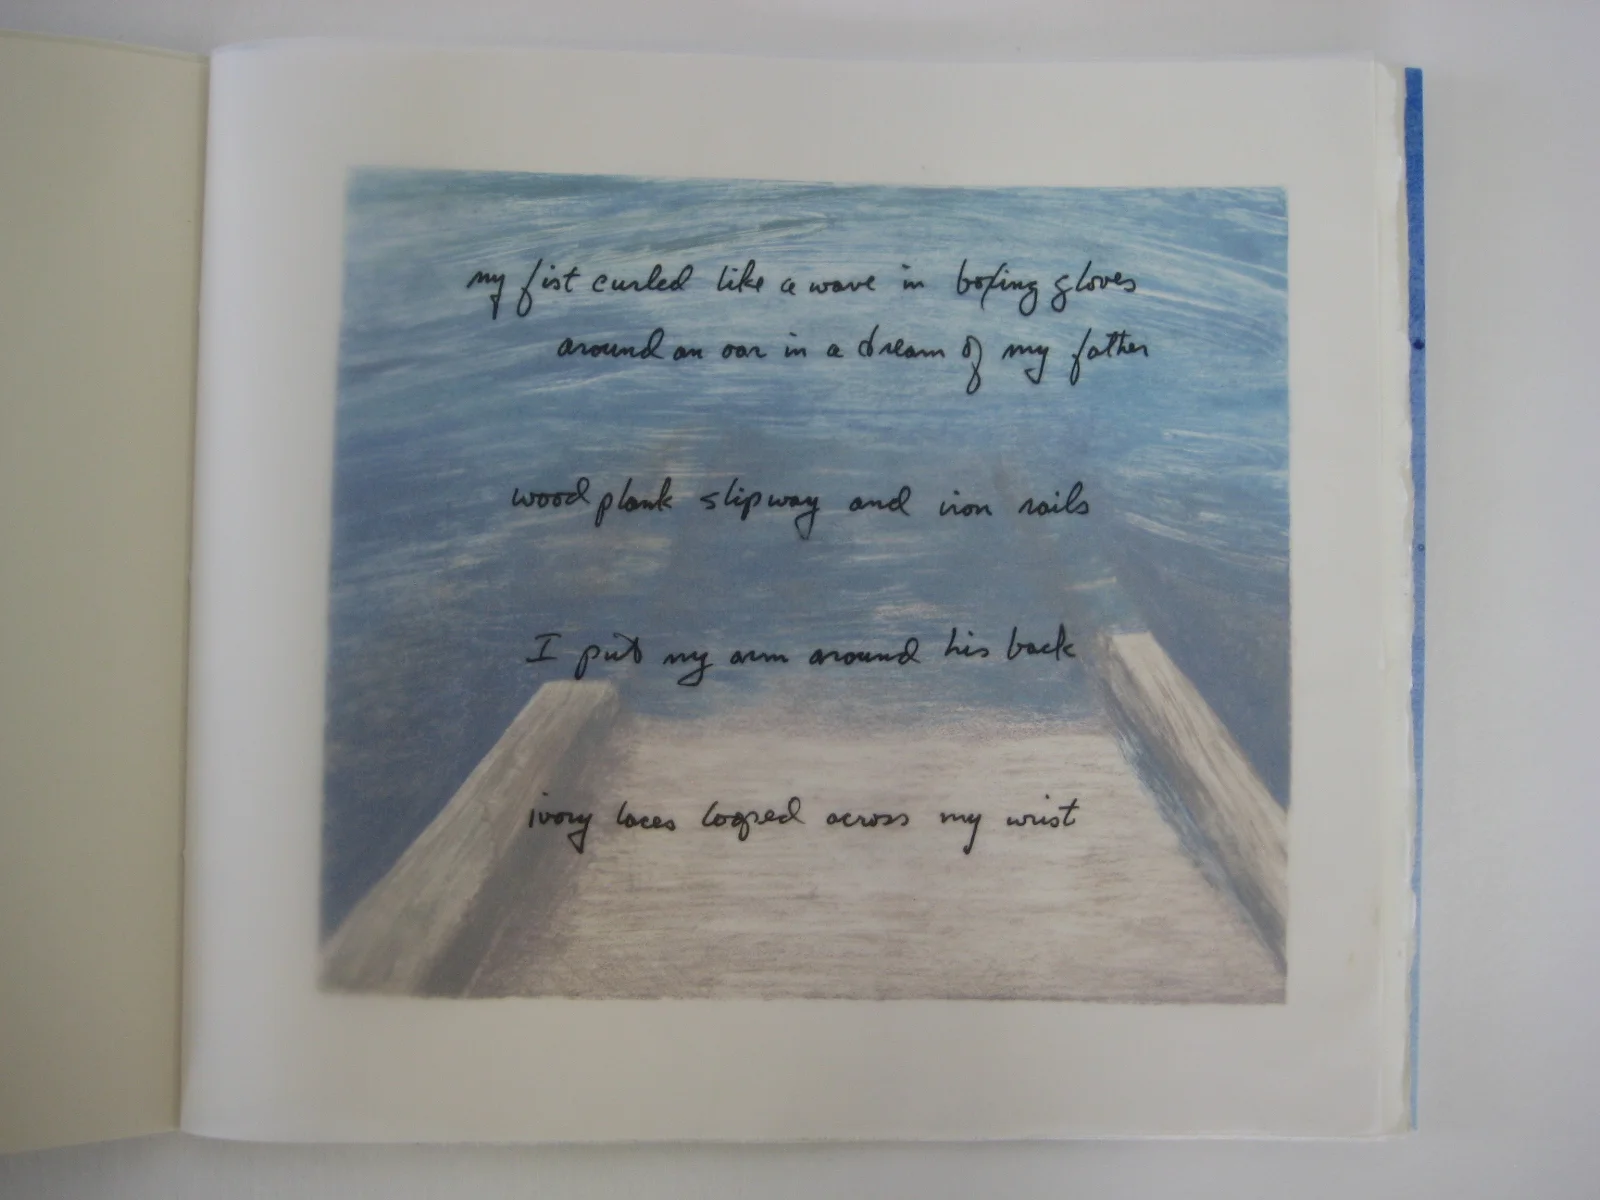 my fist curled like a wave in boxing gloves
around an oar in a dream of my father
wood plank slipway and iron rails
I put my arm around his back
ivory laces looped across my wrist